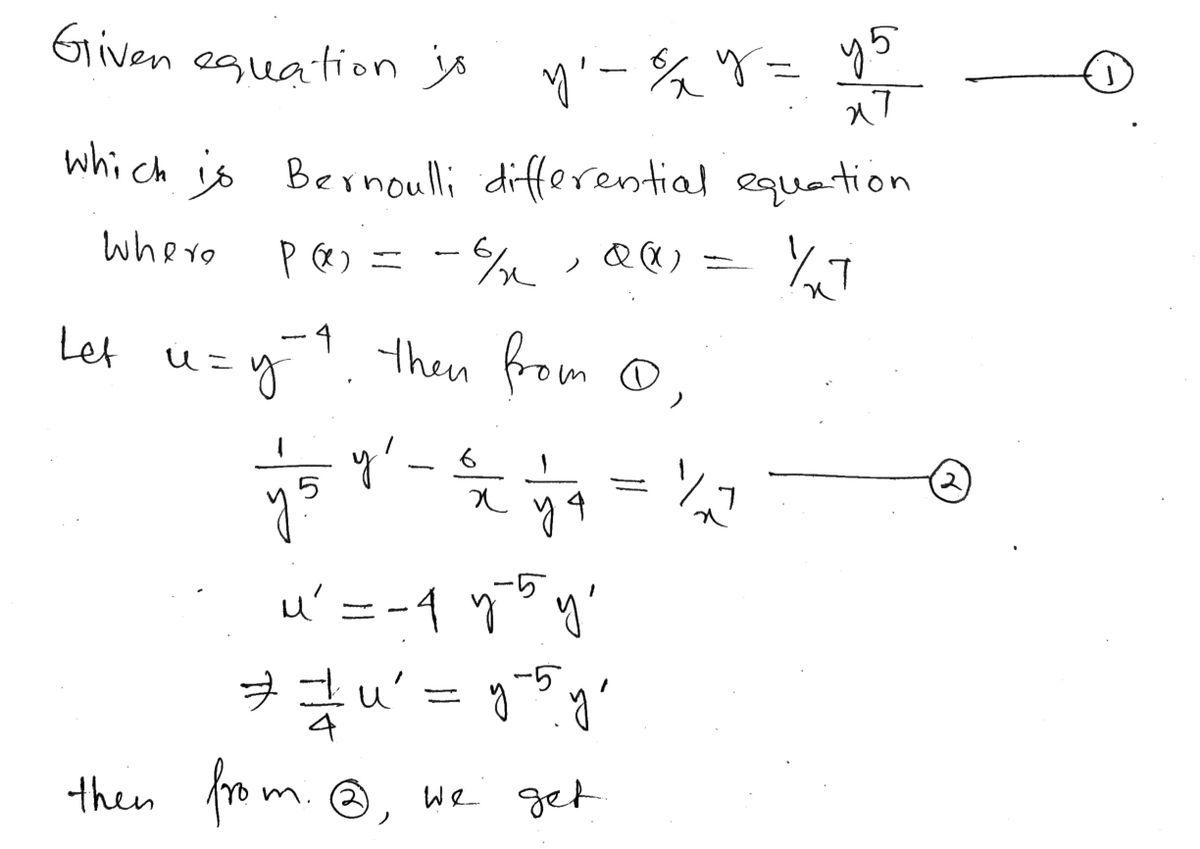 Given equation is y' - 6/x y = y^5/x^7 —— ①
which is Bernoulli differential equation
where P(x) = -6/x , Q(x) = 1/x^7
Let u = y^-4. then from ①,
1/y^5 y' - 6/x 1/y^4 = 1/x^7 —— ②
u' = -4 y^-5 y'
⇒ -1/4 u' = y^-5 y'
then from ②, we get